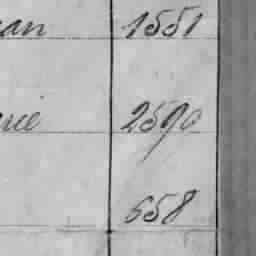 an 1551
rie 2590
658